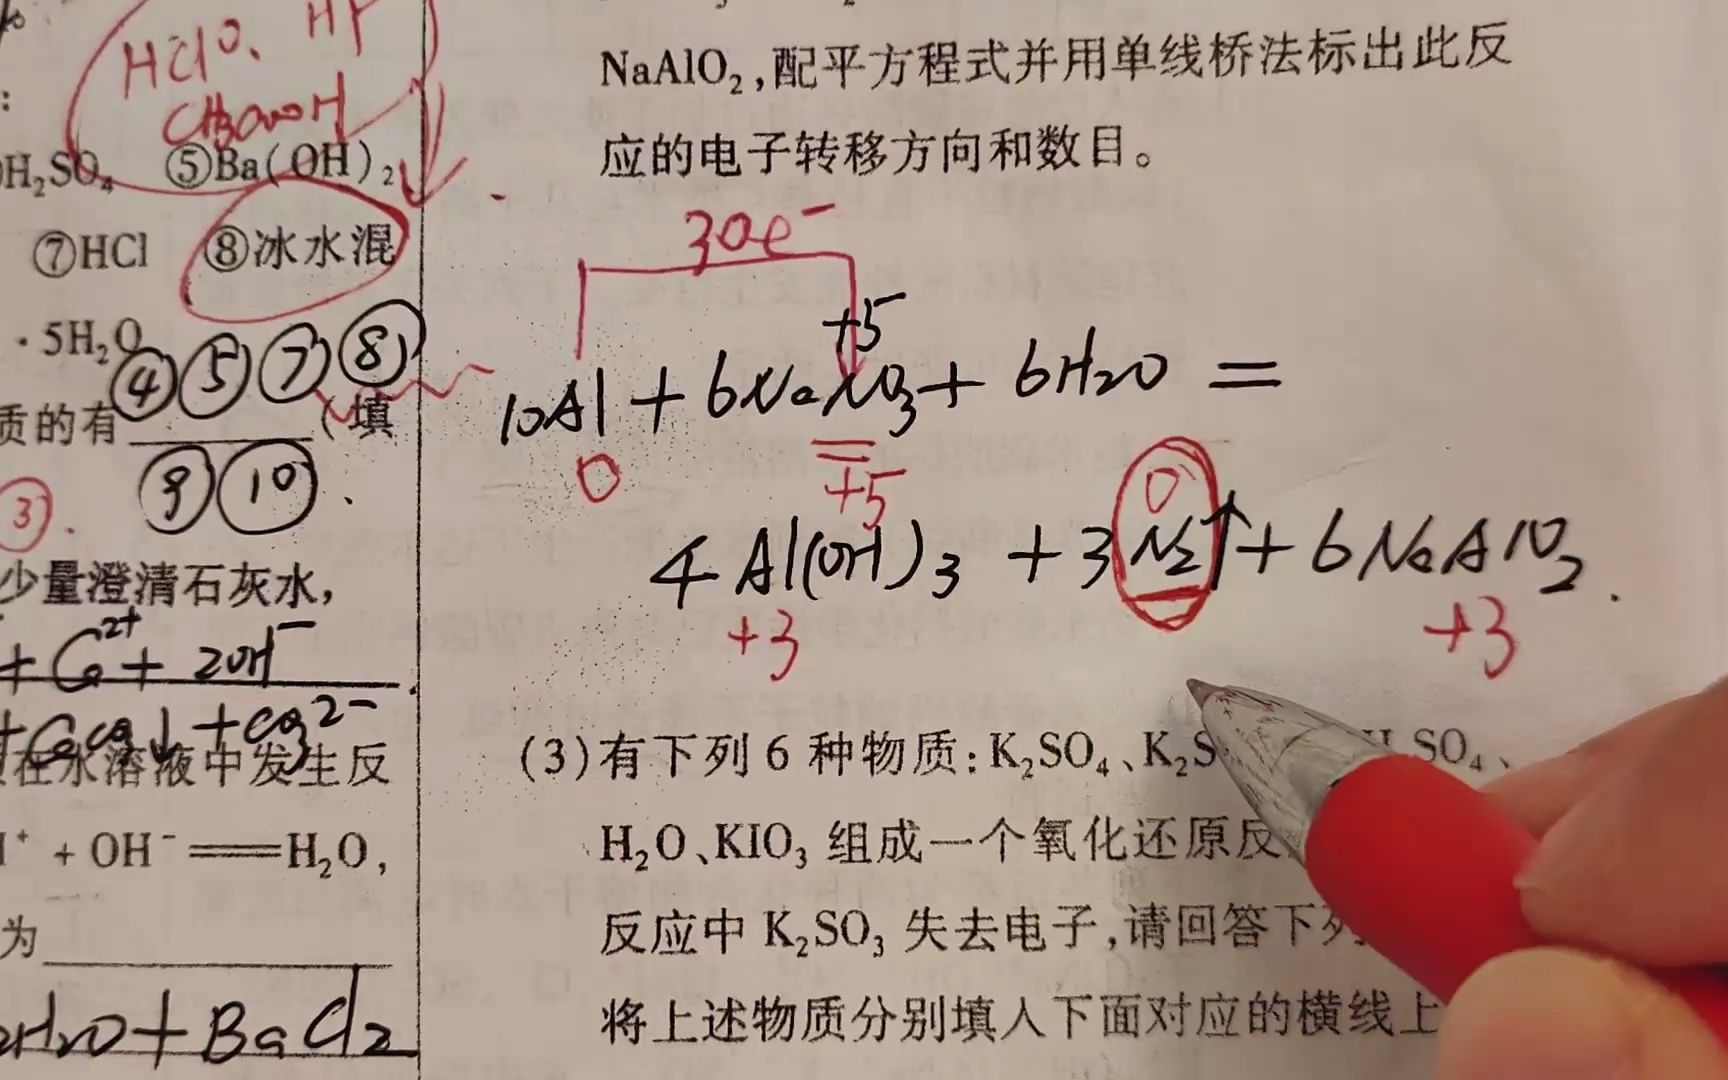 HClO、HF
CH3COOH
H₂SO₄ ⑤Ba(OH)₂
⑦HCl ⑧冰水混
·5H₂O
④⑤⑦⑧
质的有（填
⑨⑩.
③.
少量澄清石灰水，
+ Ca²⁺ + 2OH⁻
+CaCO₃↓+CO₃²⁻
在水溶液中发生反
+ OH⁻══H₂O，
为
H₂O+BaCl₂
NaAlO₂，配平方程式并用单线桥法标出此反
应的电子转移方向和数目。
30e⁻
+5
10Al + 6NaNO₃ + 6H₂O =
0 +5
0
4Al(OH)₃ + 3N₂↑ + 6NaAlO₂.
+3 +3
(3)有下列6种物质：K₂SO₄、K₂S SO₄、
H₂O、KIO₃组成一个氧化还原反
反应中K₂SO₃失去电子，请回答下列
将上述物质分别填入下面对应的横线上